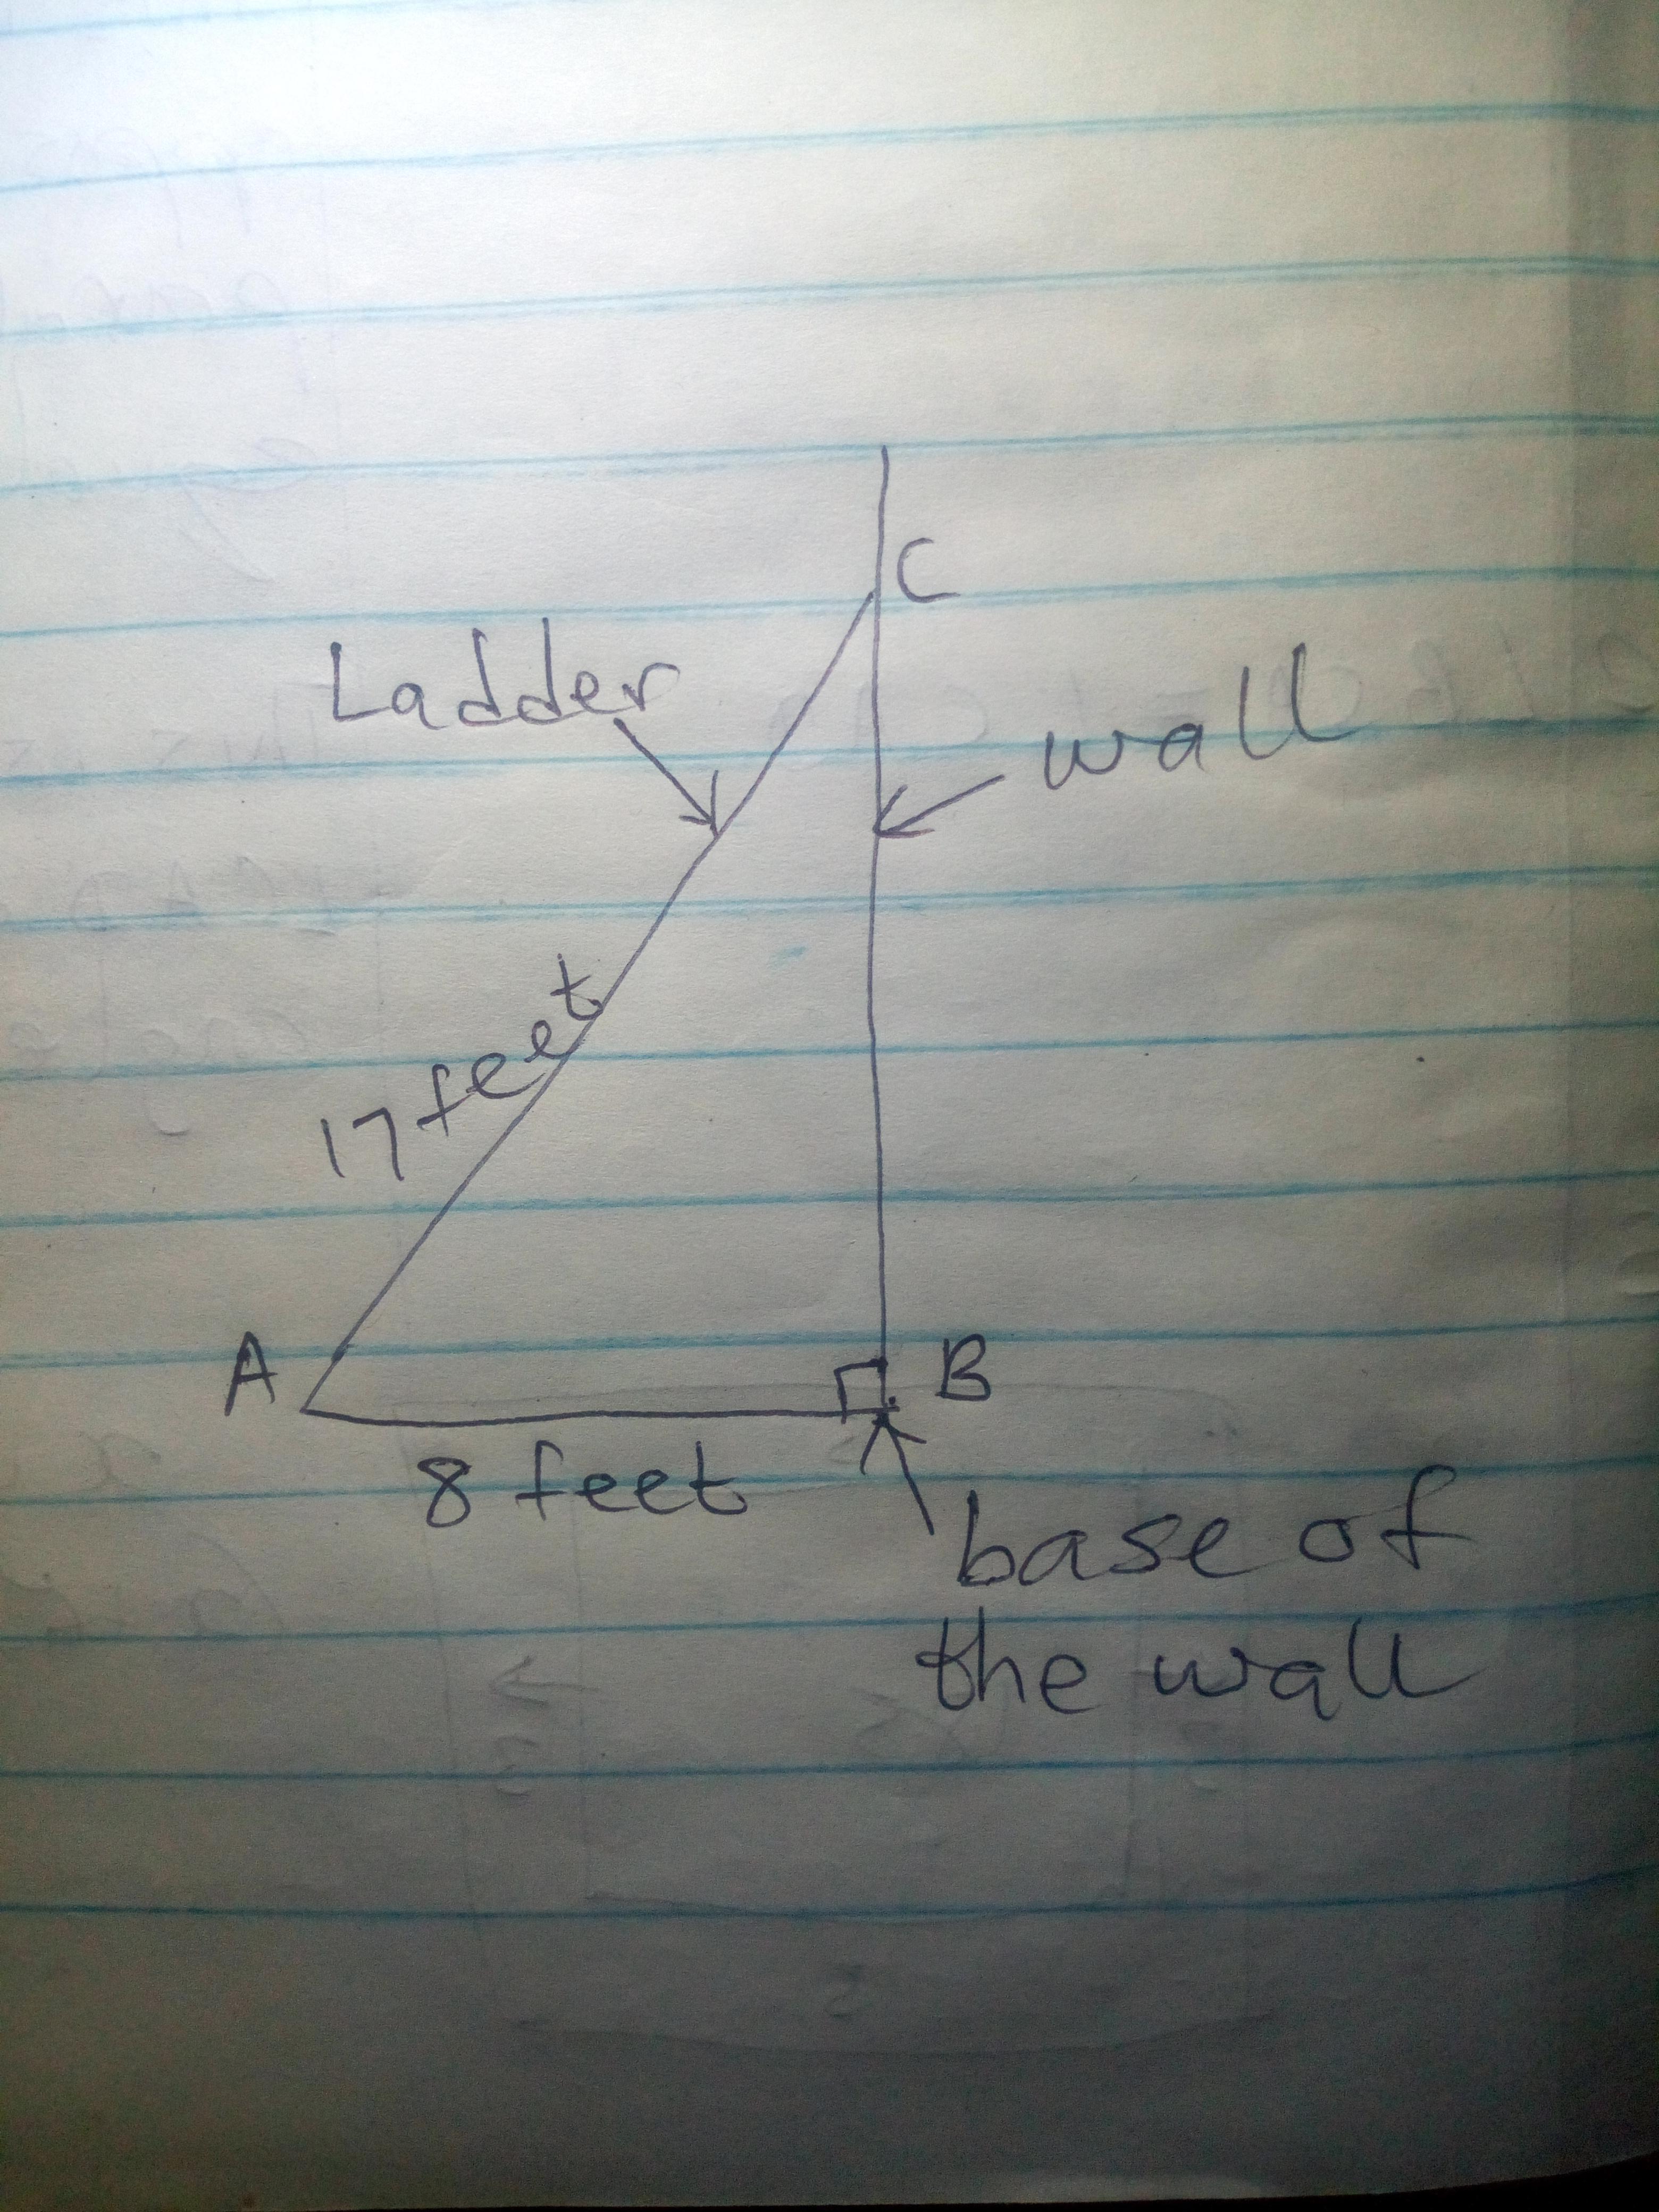 C
Ladder
wall
17 feet
A
B
8 feet
base of
the wall